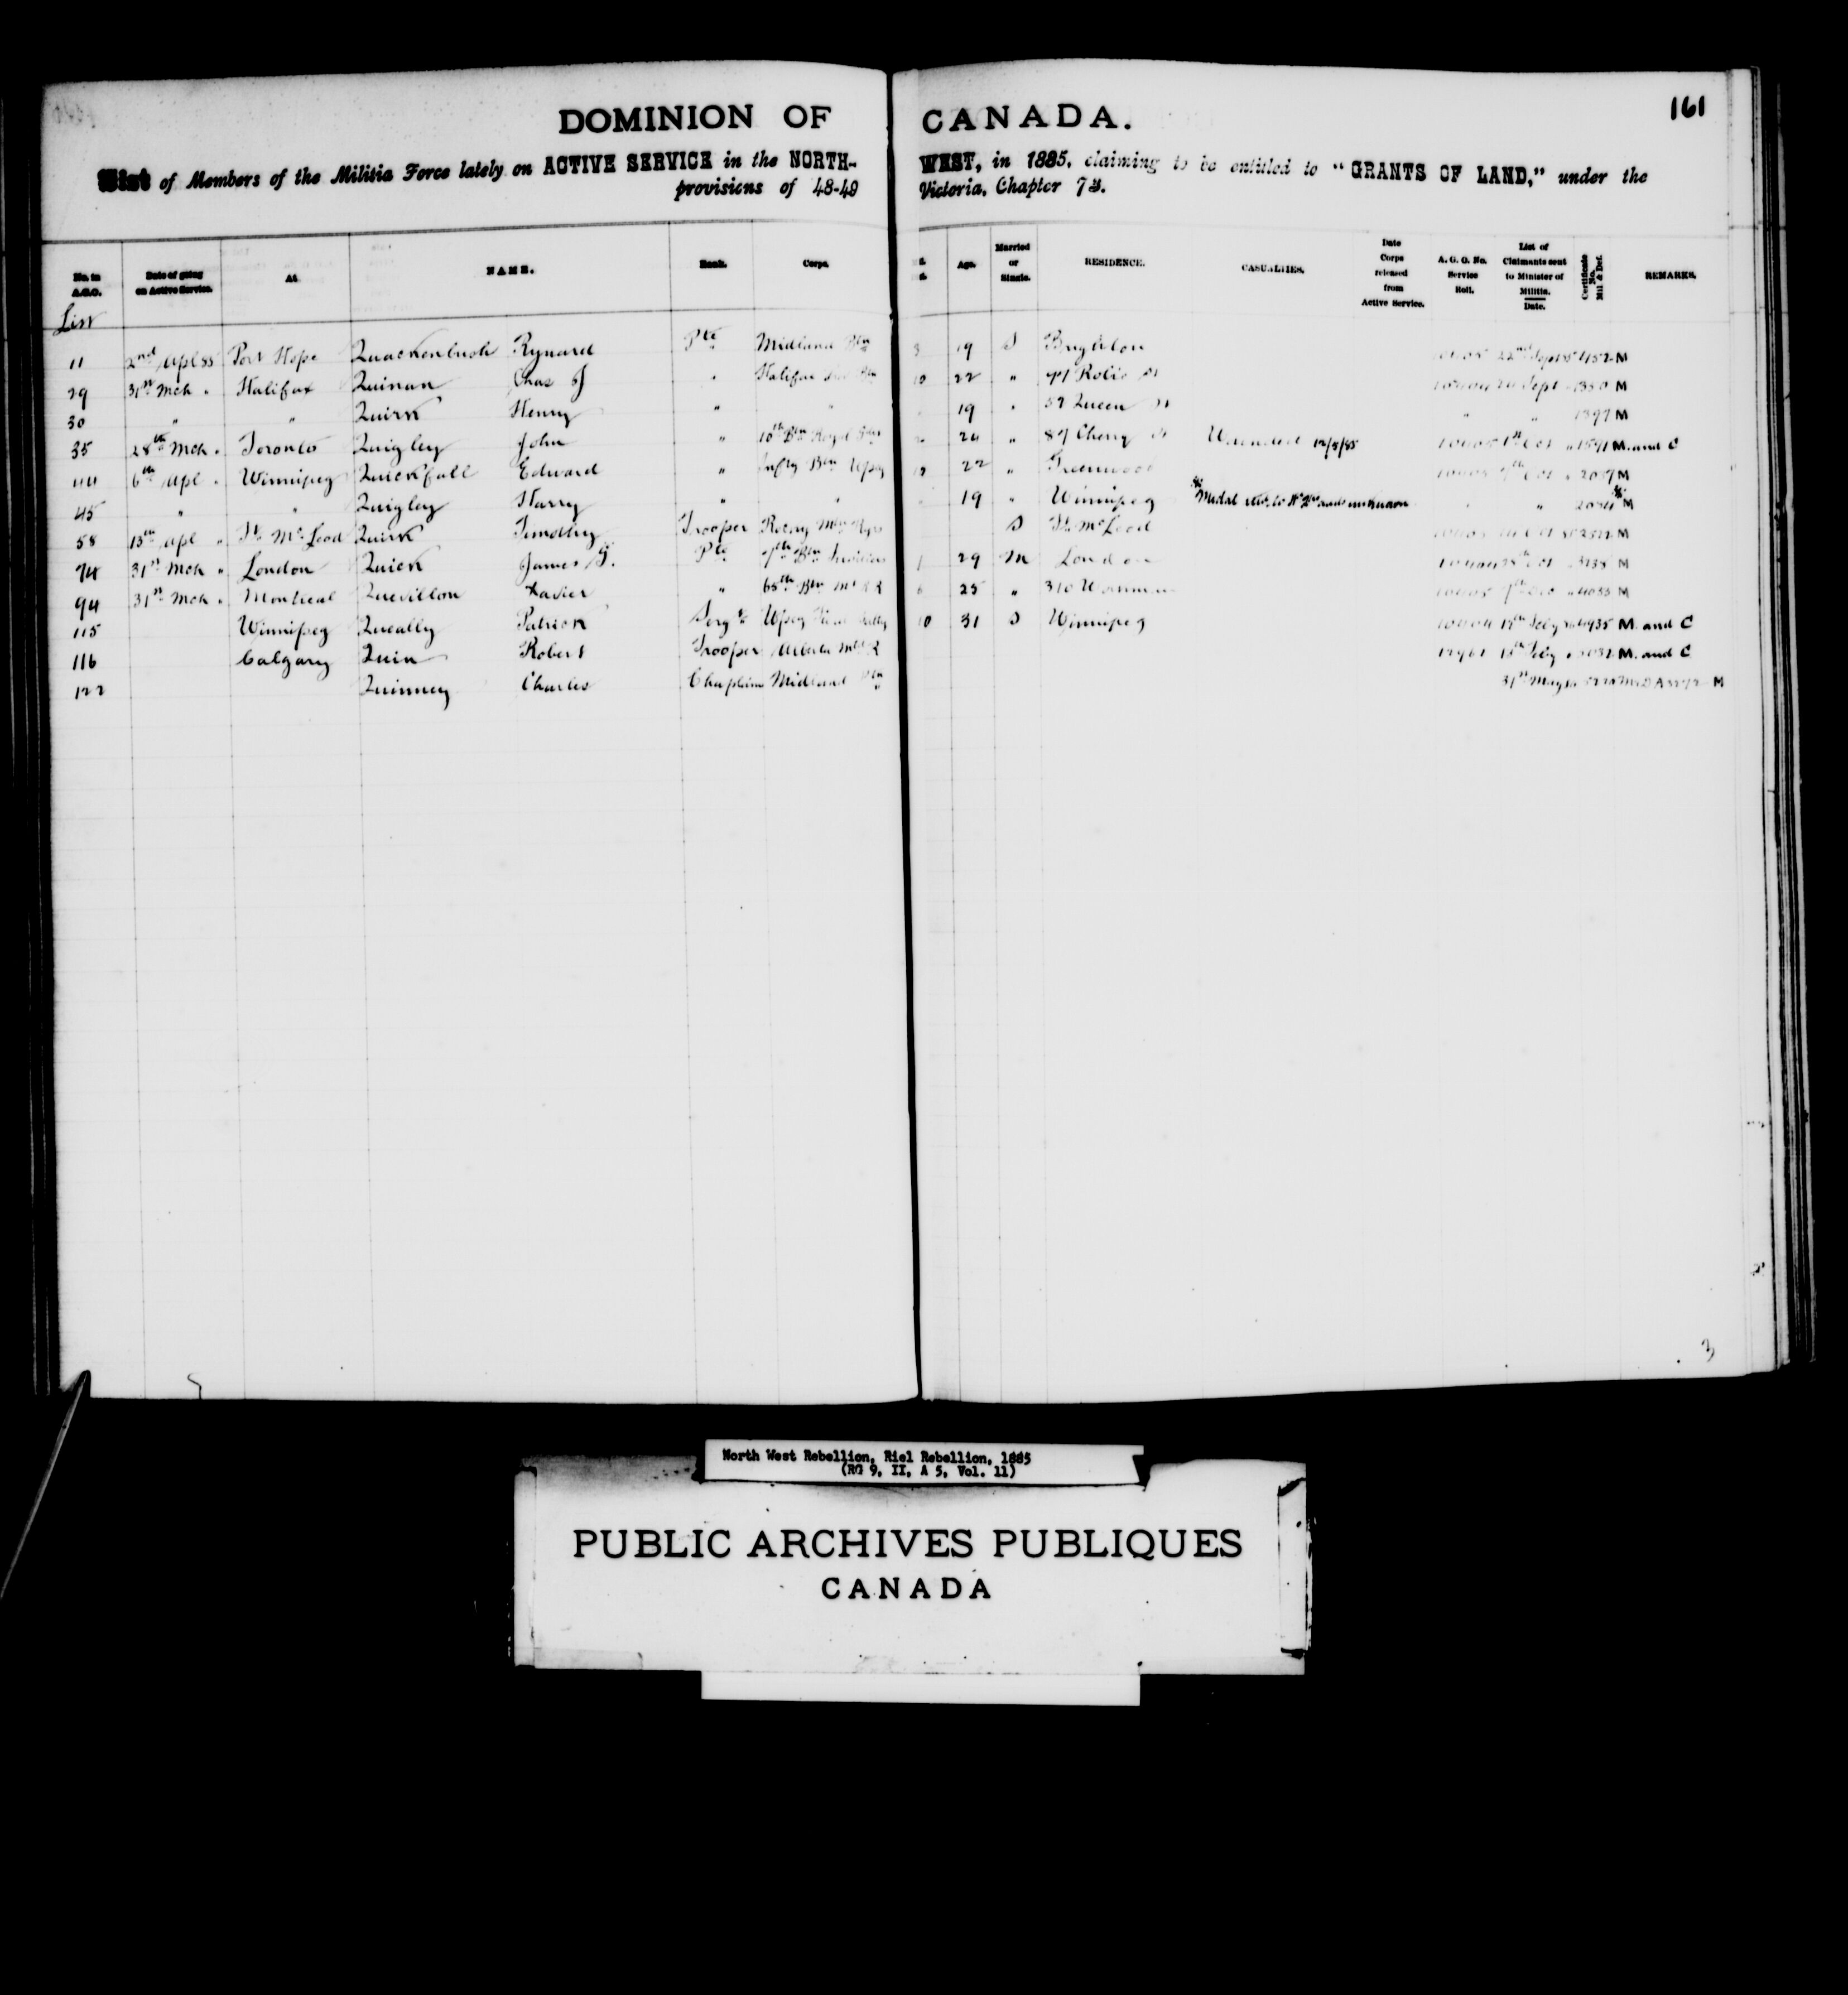 DOMINION OF CANADA.
161
List of Members of the Militia Force lately on ACTIVE SERVICE in the NORTH-WEST, in 1885, claiming to be entitled to "GRANTS OF LAND," under the
provisions of 48-49 Victoria, Chapter 73.
No. in A.G.O. Date of going on Active Service. At NAME. Rank. Corps. Age. Married or Single. RESIDENCE. CASUALTIES. Date Corps released from Active Service. A. G. O. No. Service Roll. List of Claimants sent to Minister of Militia. Date. Certificate No. Mil & Def. REMARKS.
List
11 2nd Apl 85 Port Hope Quackenbush Rynard Pte Midland Btn 19 S Brighton 22nd Sept 85 1152 M
29 31st Mch " Halifax Quinan Chas J " Halifax Btn 10 22 " St Sept 1350 M
30 " " Quirk Henry " " 19 " 52 Queen St " " 1397 M
35 28th Mch " Toronto Quigley John " 10th Btn Royal 24 " 87 Cherry St Wounded 12/5/85 1st Oct " 1591 M. and C
44 6th Apl " Winnipeg Quickfall Edward " Infty Btn Wpeg 22 " Greenwood Oct M
45 " " Quigley Harry " " 19 " Winnipeg Medal unknown " " M
58 13th Apl " Ft McLeod Quirk Timothy Trooper Rocky Mtn S Ft McLeod Oct M
74 31st Mch " London Quick James G. Pte 7th Btn Fusiliers 1 29 M London Oct M
94 31st Mch " Montreal Quevillon Xavier " 65th Btn M R R 25 " 310 " 4033 M
115 Winnipeg Queally Patrick Sergt Wpeg 10 31 S Winnipeg M. and C
116 Calgary Quin Robert Trooper Alberta Mtd R M. and C
122 Quinney Charles Chaplain Midland Btn 31st May M
3
North West Rebellion, Riel Rebellion, 1885
(RG 9, II, A 5, Vol. 11)
PUBLIC ARCHIVES PUBLIQUES
CANADA